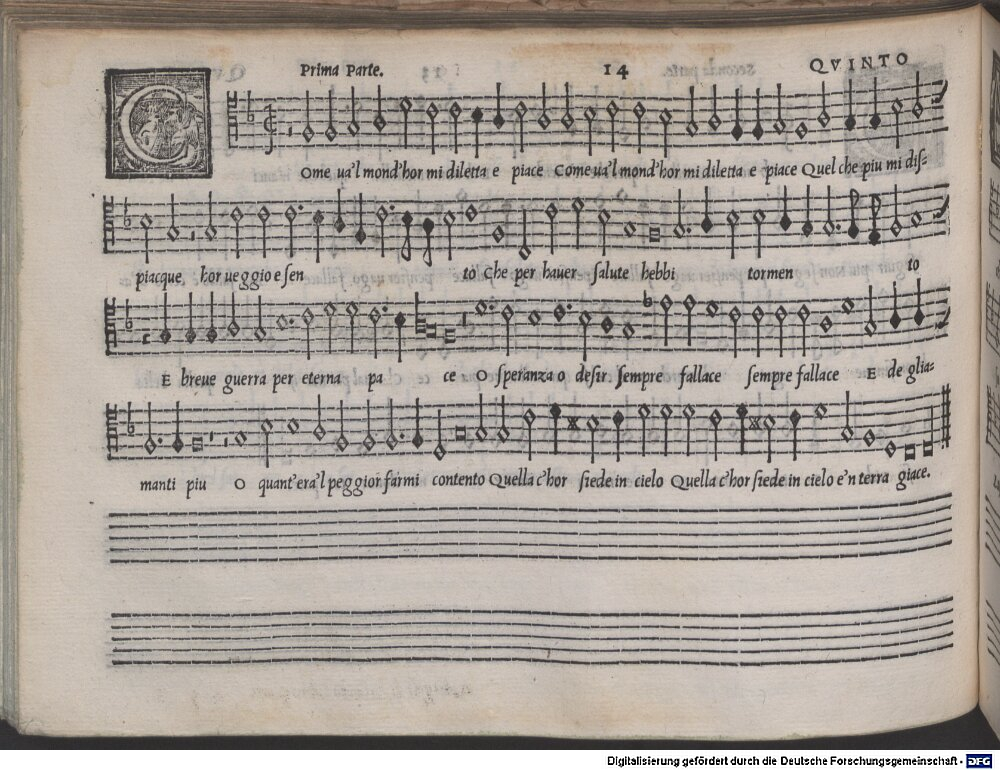 Prima Parte. 14 QVINTO
COme ua'l mond'hor mi diletta e piace Come ua'l mond'hor mi diletta e piace Quel che piu mi dis-
piacque, hor ueggio e sen to Che per hauer salute hebbi tormen to
E breue guerra per eterna pa ce O speranza o desir sempre fallace sempre fallace E de glia-
manti piu O quant'era'l peggior farmi contento Quella c'hor siede in cielo Quella c'hor siede in cielo e'n terra giace.
Digitalisierung gefördert durch die Deutsche Forschungsgemeinschaft - DFG